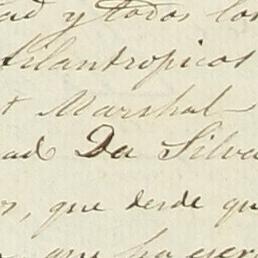 ad y todos los
filantropicos
t Marshal
ad Da Silva
s, que desde qu
que ha